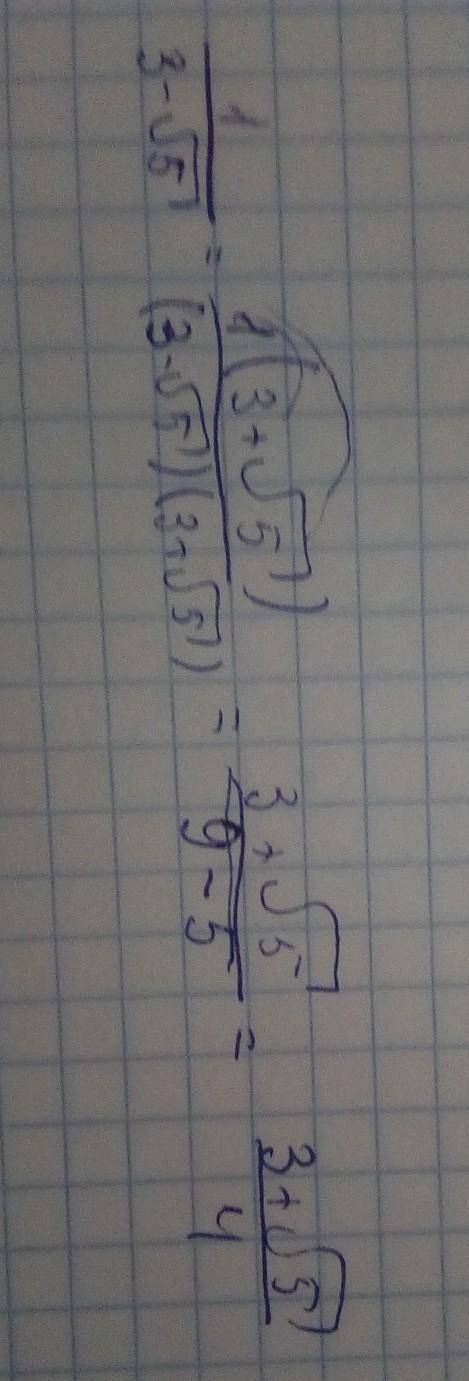 1/(3-√5) = 1(3+√5)/((3-√5)(3+√5)) = (3+√5)/(9-5) = (3+√5)/4